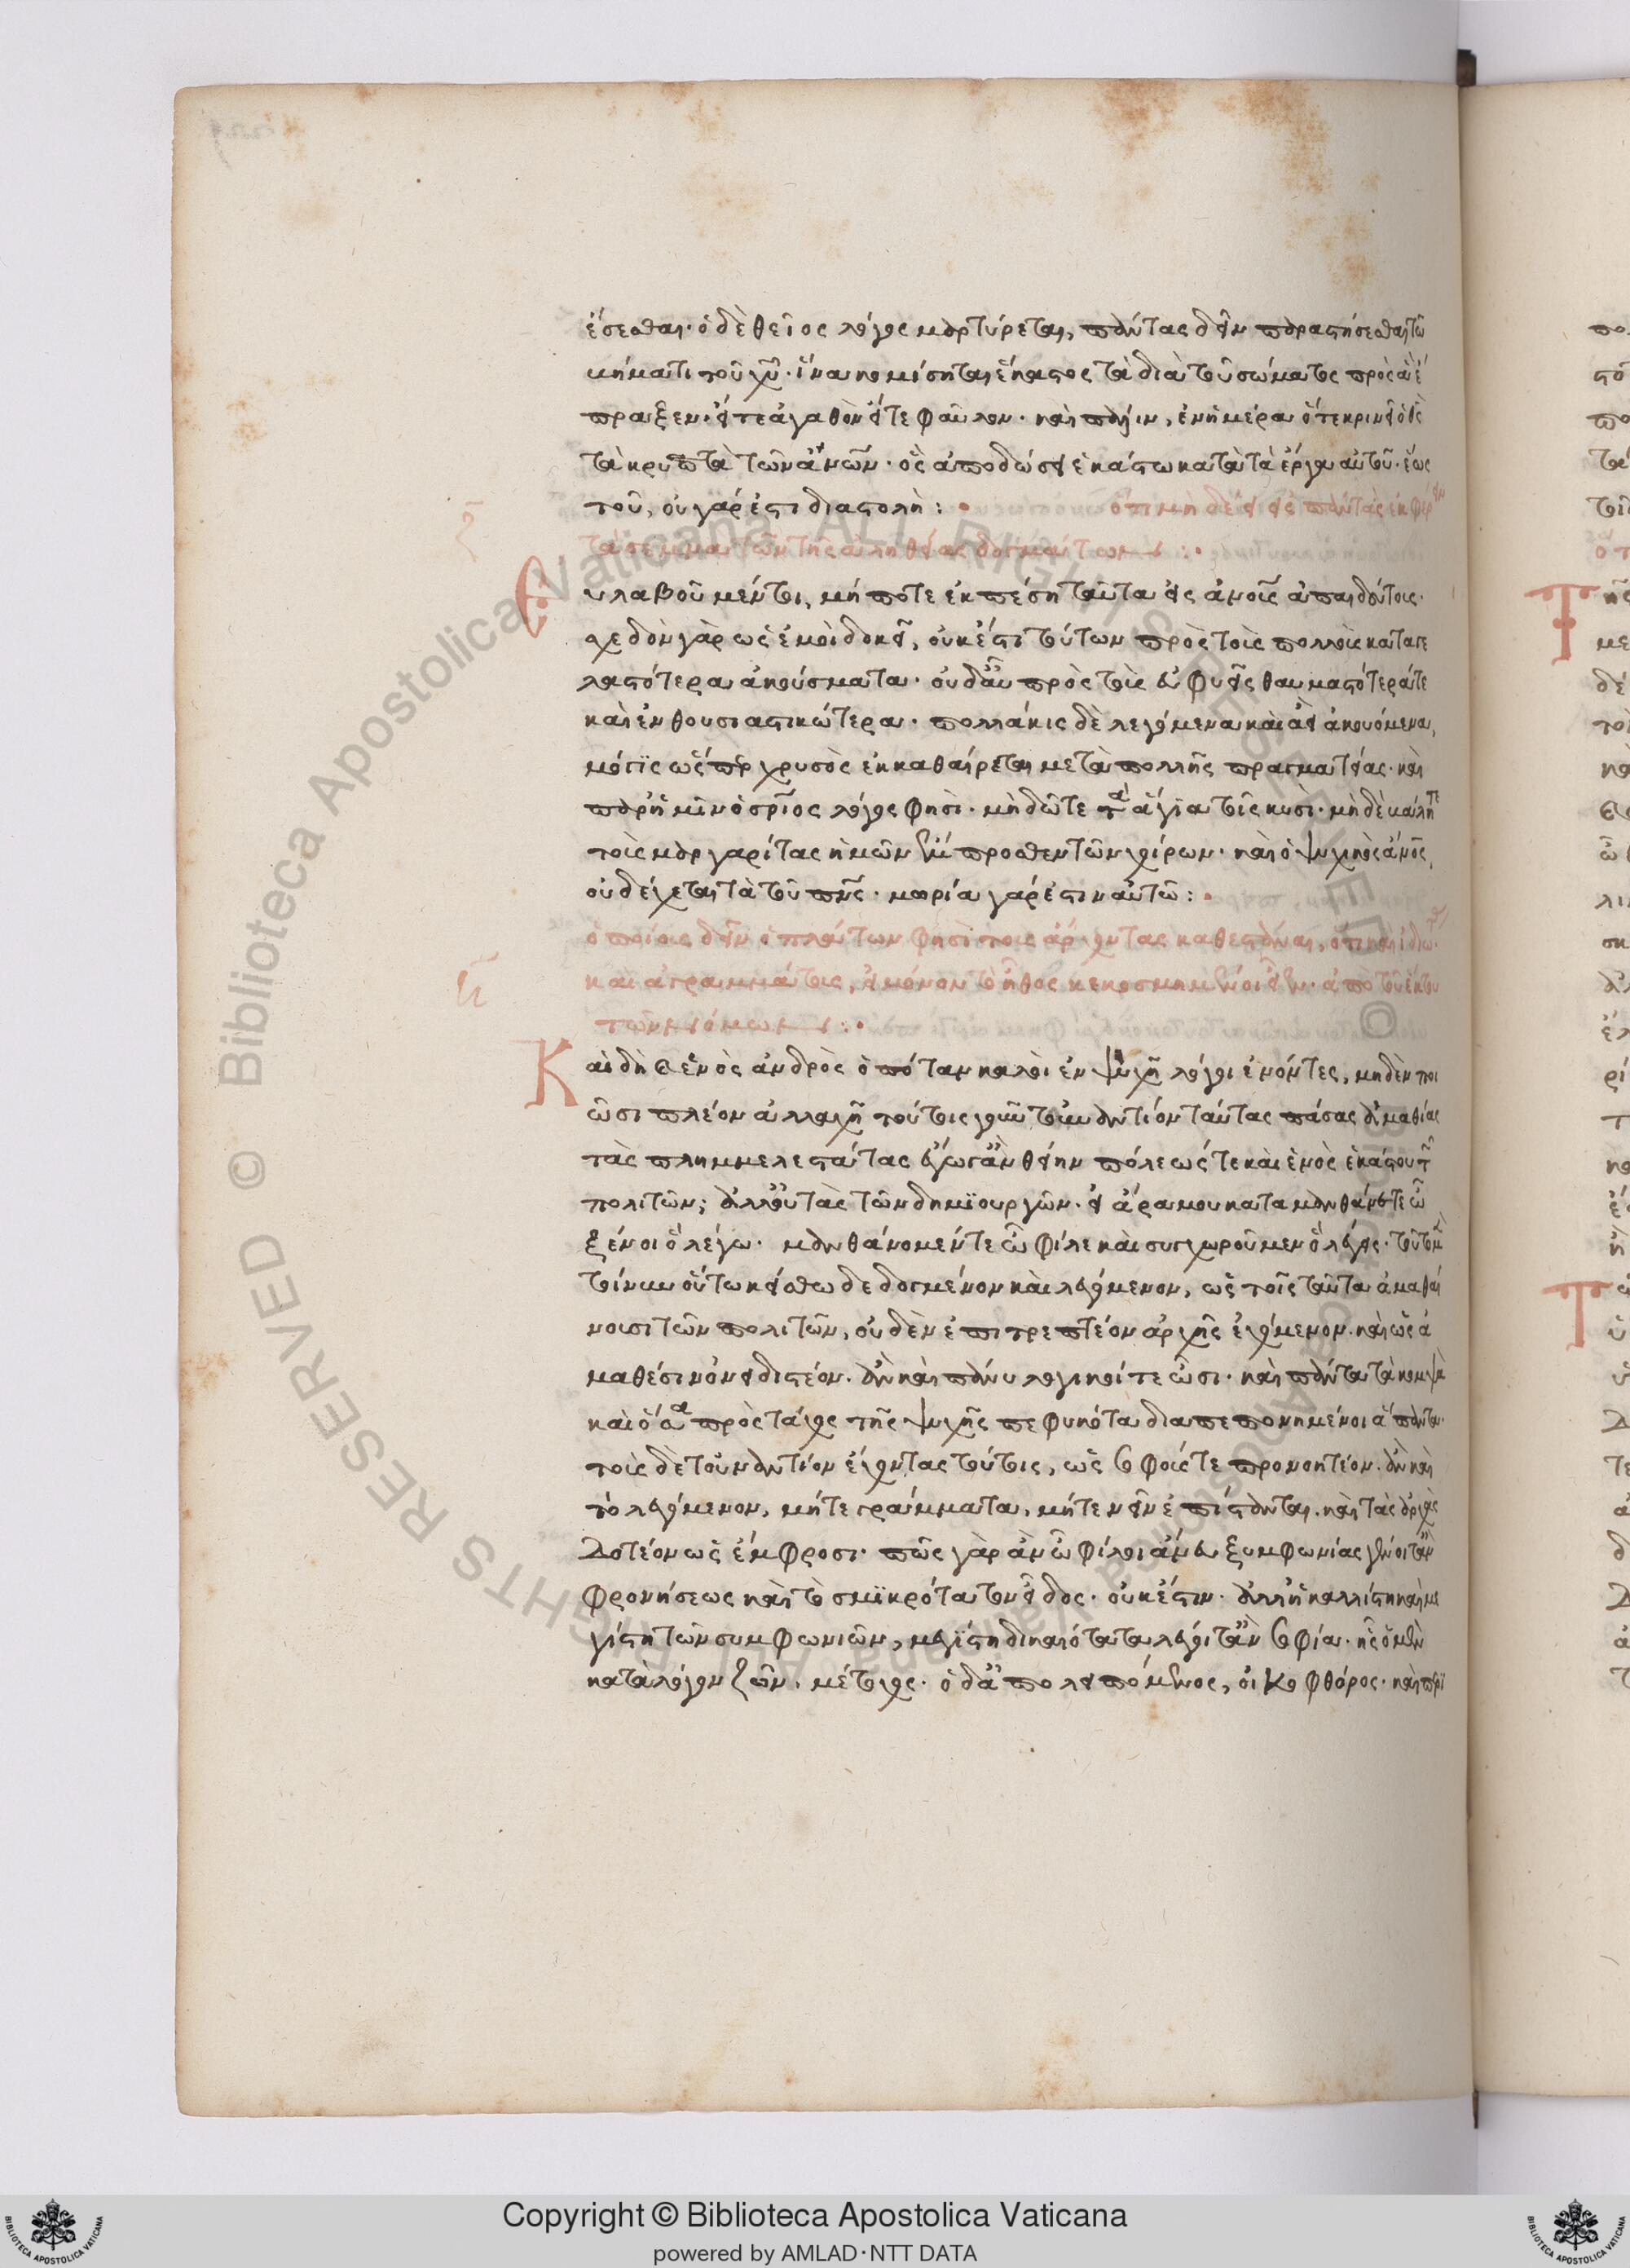 ἔσεσθαι· ὁ δὲ θεῖος λόγος μαρτύρεται, πάντας δεῖν παραστήσεσθαι τῶ
βήματι τοῦ χυ̅· ἵνα κομίσηται ἕκαστος τὰ διὰ τοῦ σώματος πρὸς ἃ ἔ
πραξεν· εἴτε ἀγαθὸν εἴτε φαῦλον· καὶ πάλιν, ἐν ἡμέρα ὅτε κρινεῖ ὁ θς̅
τὰ κρυπτὰ τῶν ἀνων̅· ὃς ἀποδώσει ἑκάστω κατὰ τὰ ἔργα αὐτοῦ· ἕως
τοῦ, οὐ γάρ ἐστι διαστολὴ :
ὅτι μὴ δεῖ εἰς πάντας ἐκφέρειν
τὰ σεμνὰ τῶν τῆς ἀληθείας δογμάτων :
ζ
Εὐλαβοῦ μέν τοι, μή ποτε ἐκπέση ταῦτα εἰς ἀνοις̅ ἀπαιδεύτοις·
σχεδὸν γὰρ ὡς ἐμοὶ δοκεῖ, οὐκ ἔστι τούτων πρὸς τοὺς πολλοὺς καταγε
λαστότερα ἀκούσματα· οὐδ' αὖ πρὸς τοὺς εὐφυεῖς θαυμαστότερά τε
καὶ ἐνθουσιαστικώτερα· πολλάκις δὲ λεγόμενα καὶ ἀεὶ ἀκουόμενα,
μόγϊς ὥσπερ χρυσὸς ἐκκαθαίρεται μετὰ πολλῆς πραγματείας· καὶ
παρ' ἡμῖν ὁ σρι̅ος λόγος φησὶ· μὴ δῶτε τὰ ἅγϊα τοῖς κυσὶ· μὴ δὲ βάλητε
τοὺς μαργαρίτας ἡμῶν ἔμπροσθεν τῶν χοίρων· καὶ ὁ ψυχικὸς ἀνος̅,
οὐ δέχεται τὰ τοῦ πνς̅· μωρία γάρ ἐστιν αὐτῶ :
ὁποίους δεῖν ὁ πλάτων φησὶ τοὺς ἄρχοντας καθεστάναι, ὅτι καὶ ἰδιώτας
καὶ ἀγραμμάτους, εἰ μόνον τὸ ἦθος κεκοσμημένοι εἶεν· ἀπὸ τοῦ ἕκτου
τῶν νόμων :
η
Καὶ δὴ καὶ ἑνὸς ἀνδρὸς ὁπόταν καλοὶ ἐν ψυχῆ λόγοι ἐνόντες, μηδὲν ποι
ῶσι πλέον ἀλλὰ δὴ τούτοις πᾶν τοὐναντίον ταύτας πάσας ἀμαθίας
τὰς πλημμελεστάτας ἔγωγ' ἂν θείην πόλεώς τε καὶ ἑνὸς ἑκάστου τῶν
πολιτῶν; ἀλλ' οὐ τὰς τῶν δημϊουργῶν· εἰ ἄρα μου καταμανθάνετε ὦ
ξένοι ὃ λέγω· μανθάνομέν τε ὦ φίλε καὶ συγχωροῦμεν ὃ λέγεις· τοῦτο μὲν
τοίνυν οὕτω κείσθω δεδογμένον καὶ λεγόμενον, ὡς τοῖς ταῦτα ἀμαθαί
νουσι τῶν πολιτῶν, οὐδὲν ἐπιτρεπτέον ἀρχῆς ἐχόμενον· καὶ ὡς ἀ
μαθέσιν ὀνειδιστέον· ἂν καὶ πάνυ λογικοί τε ὦσι· καὶ πάντα τὰ κομψὰ
καὶ ὅσα πρὸς τάχος τῆς ψυχῆς πεφυκότα διαπεπονημένοι ἅπαντα·
τοὺς δὲ τοὐναντίον ἔχοντας τούτοις, ὡς σοφούς τε προνοητέον· ἂν καὶ
τὸ λεγόμενον, μήτε γράμματα, μήτε νεῖν ἐπίστανται· καὶ τὰς ἀρχὰς
δοτέον ὡς ἔμφροσι· πῶς γὰρ ἂν ὦ φίλοι ἄνευ ξυμφωνίας γένοιτ' ἂν
φρονήσεως καὶ τὸ σμϊκρότατον εἶδος· οὐκ ἔστιν· ἀλλ' ἡ καλλίστη καὶ με
γίστη τῶν συμφωνιῶν, μεγίστη δικαιότατα λέγοιτ' ἂν σοφία· ἧς ὁ μὲν
κατὰ λόγον ζῶν, μέτοχος· ὁ δ' ἀπολειπόμενος, οἰκοφθόρος· καὶ περὶ